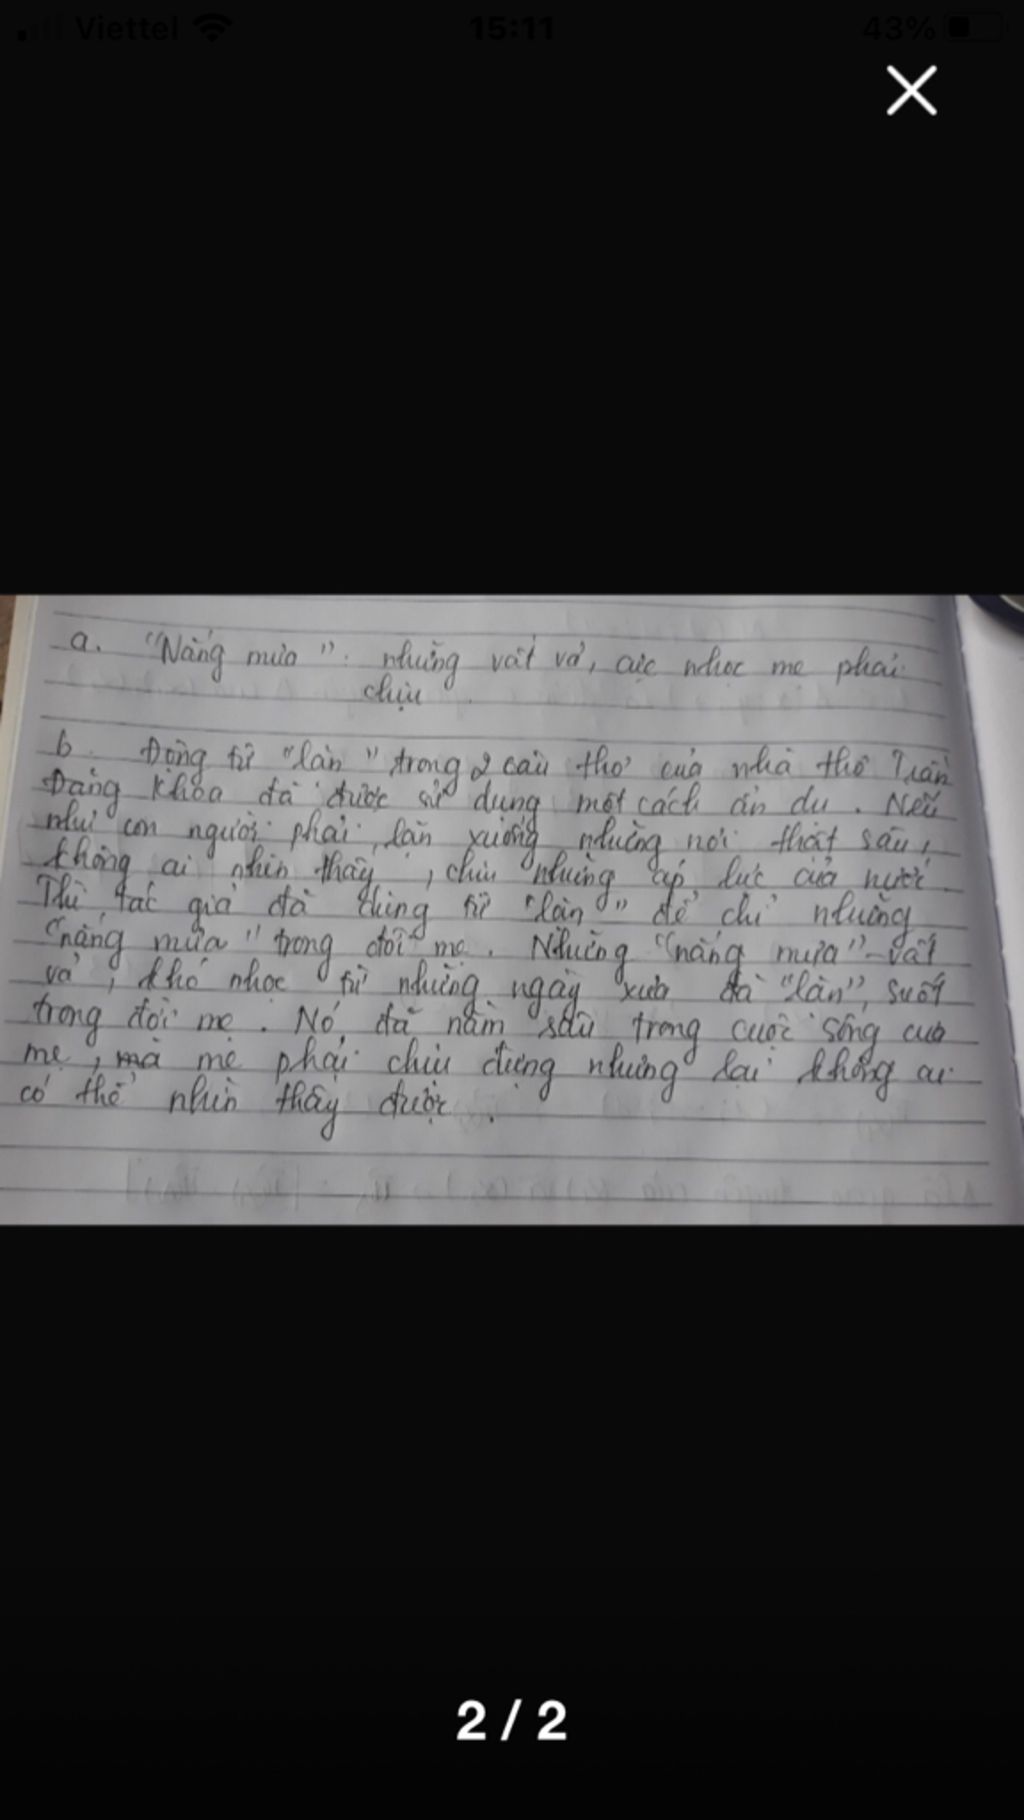 Viettel 15:11 43%
a. "Nắng mưa": những vất vả, cực nhọc mẹ phải
chịu
b. Động từ "lặn" trong 2 câu thơ của nhà thơ Trần
Đăng Khoa đã được sử dụng một cách ẩn dụ. Nếu
như con người phải lặn xuống những nơi thật sâu,
không ai nhìn thấy, chịu những áp lực của nước.
Thì, tác giả đã dùng từ "lặn" để chỉ những
"nắng mưa" trong đời mẹ. Những "nắng mưa" - vất
vả, khó nhọc từ những ngày xưa đã "lặn", suốt
trong đời mẹ. Nó đã nằm sâu trong cuộc sống của
mẹ, mà mẹ phải chịu đựng nhưng lại không ai
có thể nhìn thấy được.
2 / 2